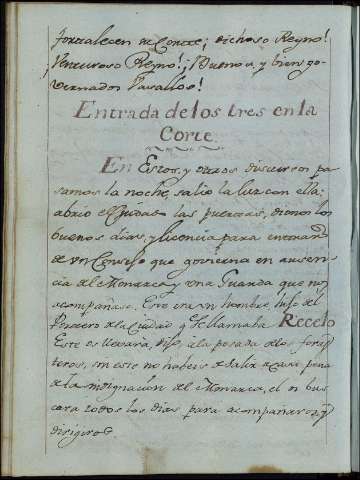 fortalecen su Corte; dichoso Reyno!
¡Venturoso Reyno!; ¡Buenos, y bien go-
vernados Vasallos!
Entrada de los tres en la
Corte.
En Estos, y otros discursos pa
samos la noche, salió la luz con ella:
abrio el Cuidado las puertas, dionos los
buenos dias, y licencia para entrar
de un Consejo que govierna en ausen-
cia del Monarca, y una Guarda que nos
acompañase. Era era un hombre, hijo del
Portero de la Ciudad q.e se llamaba Recelo
Este os llevará, dijo, a la posada de los foras
teros, en ese no habeis de salir a Casa pena
de la indignacion del Monarca, el os bus
cara todos los dias para acompañaros, y
dirigiros